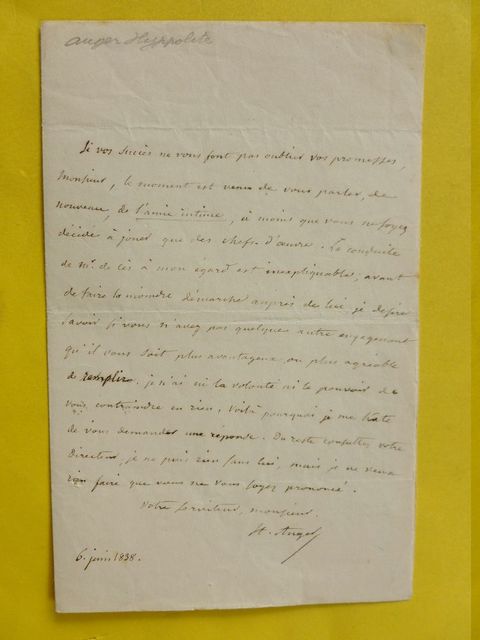 auger Hyppolite
Si vos succès ne vous font pas oublier vos promesses,
Monsieur, le moment est venu de vous parler, de
nouveau, de l'amie intime, à moins que vous ne soyez
décidé à jouer que des chefs-d'œuvre. La conduite
de Mr. de Cès à mon égard est inexpliquable; avant
de faire la moindre démarche auprès de lui je désire
savoir si vous n'avez pas quelque autre engagement
qu'il vous soit plus avantageux ou plus agréable
de remplir. je n'ai ni la volonté ni le pouvoir de
vous contraindre en rien, voilà pourquoi je me hate
de vous demander une reponse. Du reste consultez votre
Directeur, je ne puis rien sans lui, mais je ne veux
rien faire que vous ne vous soyez prononcé.
Votre serviteur, monsieur.
H. Auger
6. juin 1838.